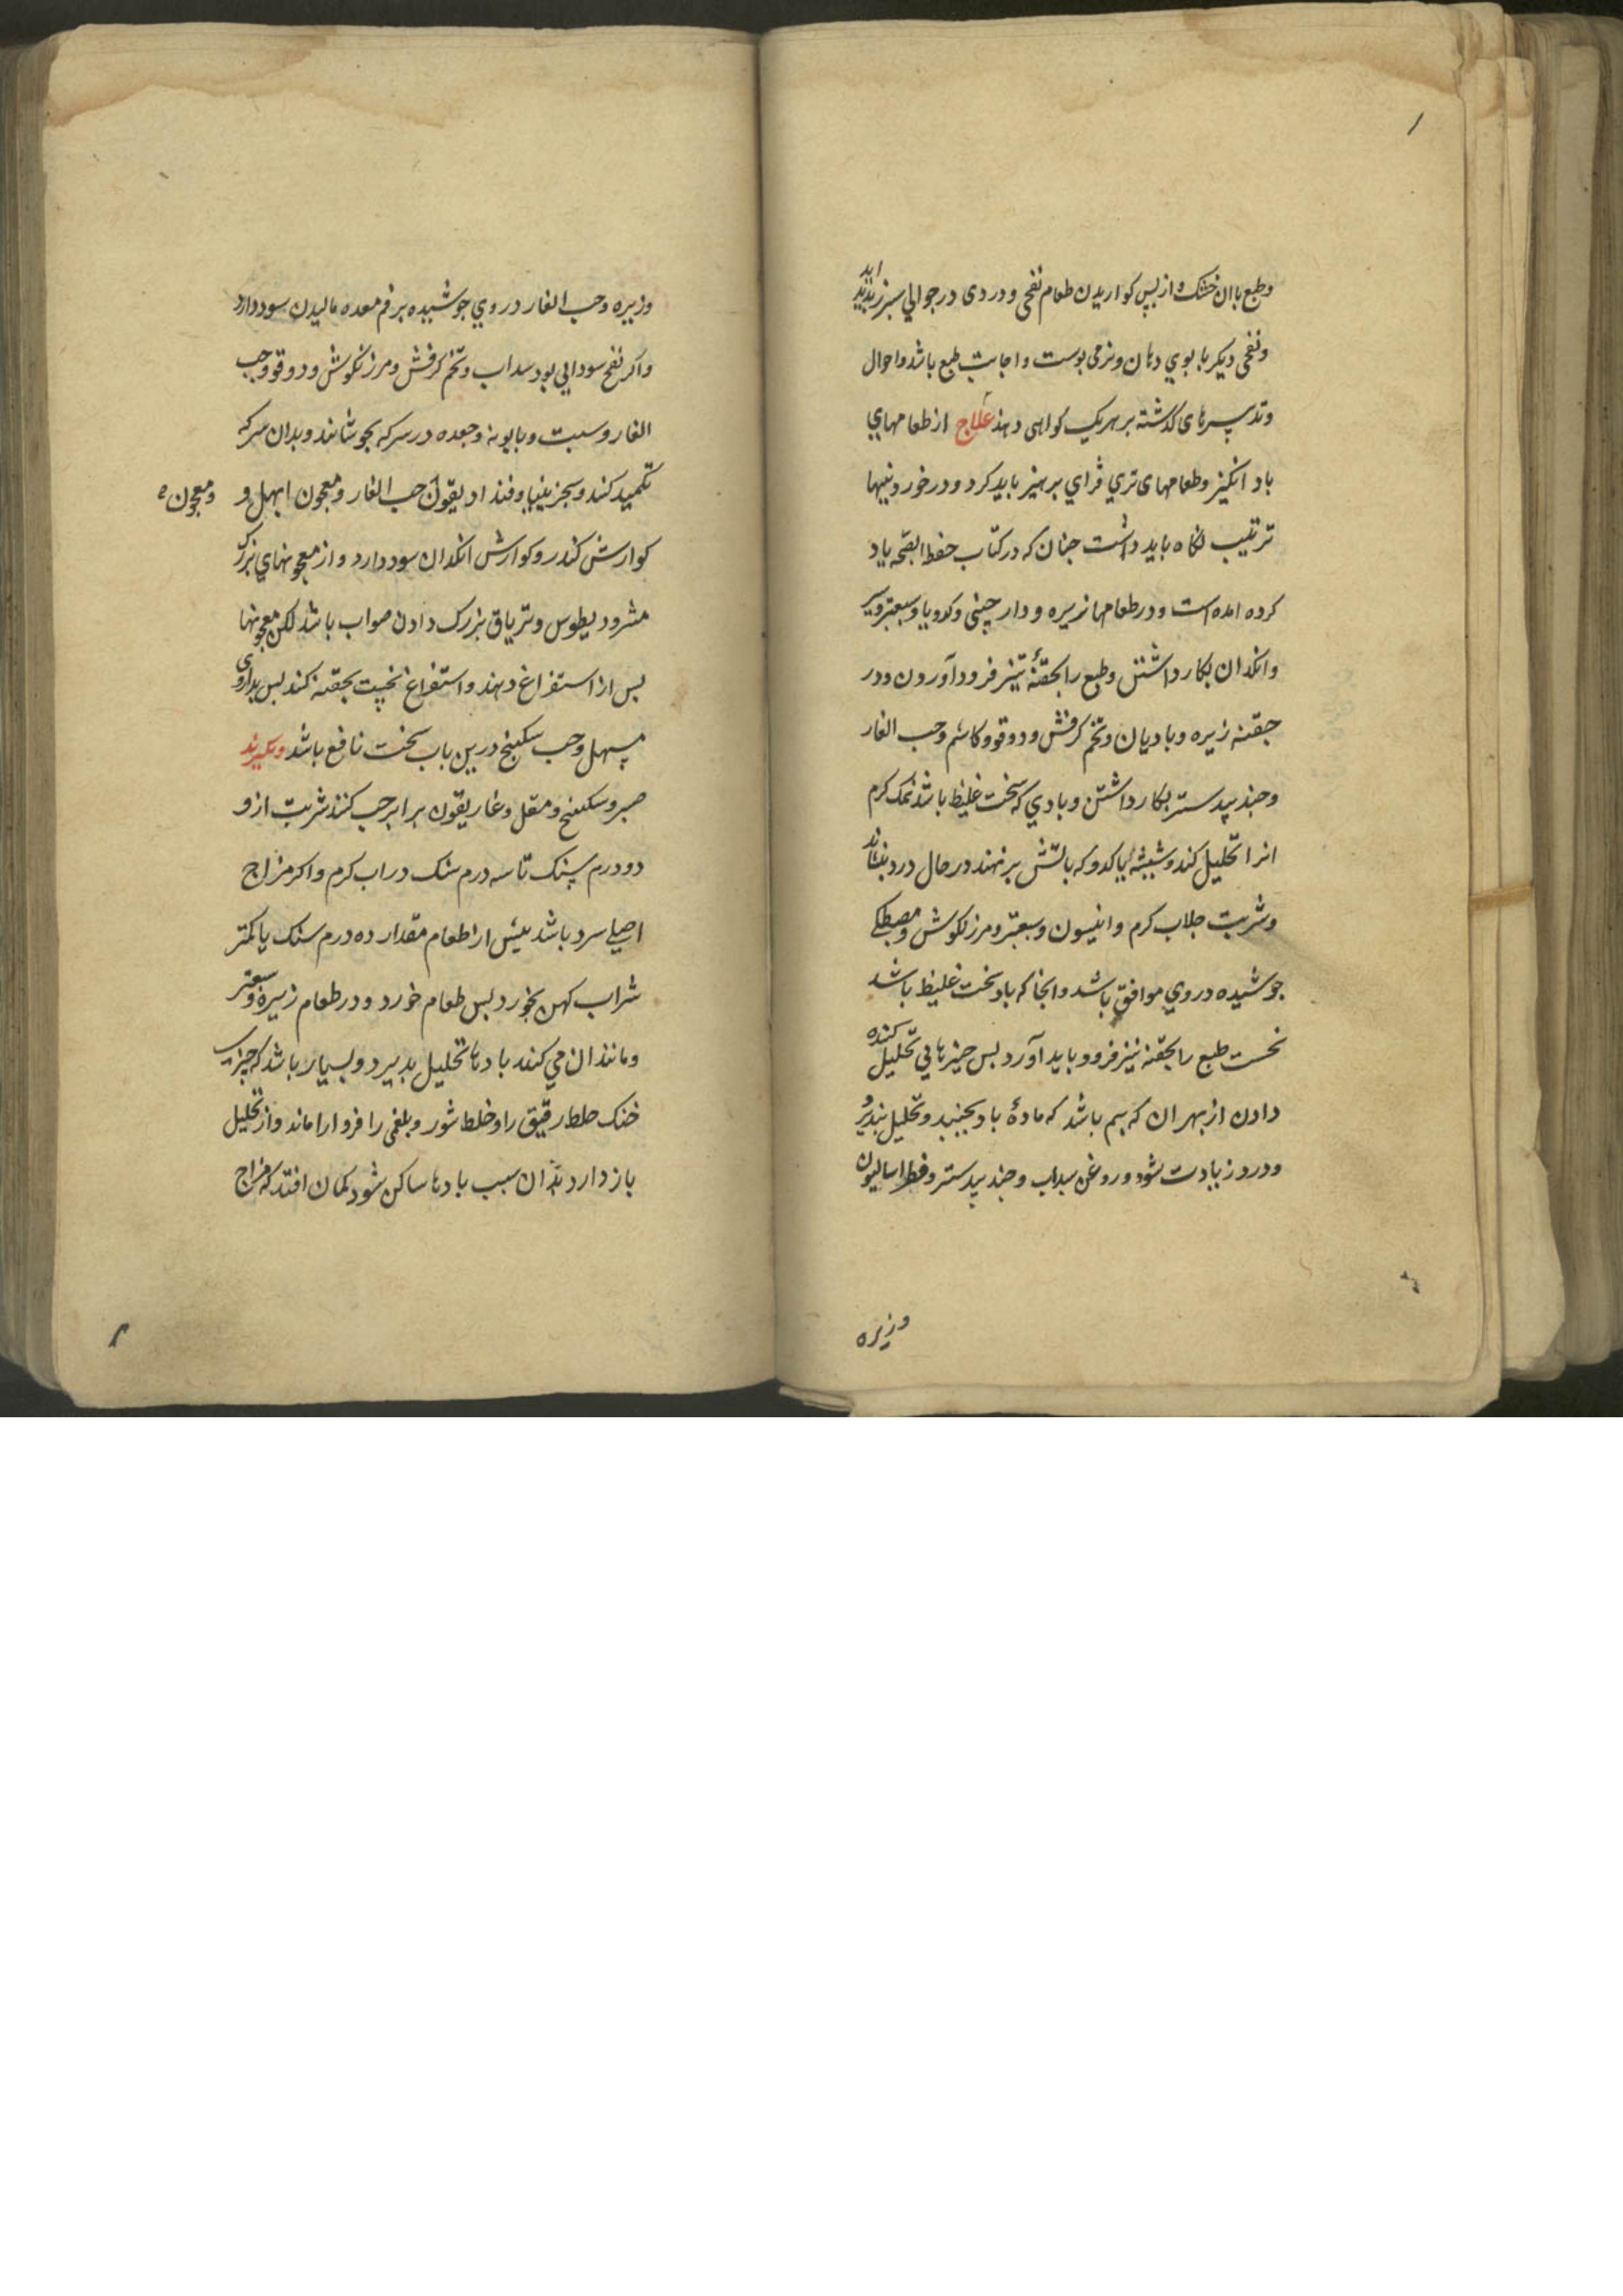 وطبع با ان خشک و از پس کواریدن طعام نفخی و دردی در حوالی سبرز بدید اید
ونفخی دیکر با بوی دهان ونرمی بوست و اجابت طبع باشد واحوال
وتدبیرهای کذشته بر هریک کواهی دهند علاج از طعامهای
باد انکیز وطعامهای تری فزای برهیز باید کرد و در خوردنیها
ترتیب نکاه باید داشت جنان که در کتاب حفظ الصحه یاد
کرده امده است ودر طعامها زیره و دارچینی وکرویا وسعتر وسیر
وانکدان بکار داشتن وطبع را بحقنهٔ تیز فرود آوردن ودر
حقنه زیره وبادیان وتخم کرفش ودوقو وکاشم وحب الغار
وجند بیدستر بکار داشتن وبادی که سخت غلیظ باشد نمک کرم
انرا تحلیل کند وشیشهٔ یا کدو که باتش برنهند در حال درد بنشاند
وشربت جلاب کرم وانیسون وسعتر ومرزنکوش ومصطکی
جوشیده در وی موافق باشد وانجا که باد سخت غلیظ باشد
نخست طبع را بحقنه تیز فرود باید آورد بس جیزهایی تحلیل کننده
دادن از بهر ان که بیم باشد که مادهٔ باد بجنبد وتحلیل نبذیرد
ودرد زیادت شود وروغن سداب وجند بیدستر وفطراسالیون
وزیره
وزیره وحب الغار در وی جوشیده بر فم معده مالیدن سود دارد
واکر نفخ سودایی بود سداب وتخم کرفش ومرزنکوش ودوقو وحب
الغار وسبت وبابونه وجعده در سرکه بجوشانند وبدان سرکه
تکمید کنند وسجزینیا وفنداديقون حب الغار ومعجون ابهل و
ومعجون
کوارش کندر وکوارش انکدان سود دارد واز معجونهای بزرک
مثرودیطوس وتریاق بزرک دادن صواب باشد لکن معجونها
بس از استفراغ دهند واستفراغ نخست بحقنه کنند بس بداروی
مسهل وحب سکبینج درین باب سخت نافع باشد وبکیرند
صبر وسکبینج ومقل وغاریقون برابر حب کنند شربت ازو
دو درم سنک تا سه درم سنک در اب کرم واکر مزاج
اصلی سرد باشد بیش از طعام مقدار ده درم سنک یا کمتر
شراب کهن بخورد بس طعام خورد ودر طعام زیره وسعتر
ومانند ان می کند بادها تحلیل بدیرد وبسیار باشد که جیزهای
خنک خلط رقیق را وخلط شور وبلغمی را فرو اراماند واز تحلیل
باز دارد بدان سبب بادها ساکن شود کمان افتد که مزاج